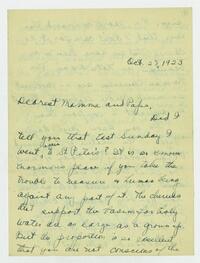 Oct. 27, 1923
Dearest Mamma and Papa,
Did I
tell you that last Sunday I
went to St Peter's? It is an
enormous place if you take the
trouble to measure a human being
against any part of it. The cherubs
that support the holy
water are as large as a group
But its proportion is so excellent
that you are not conscious of the